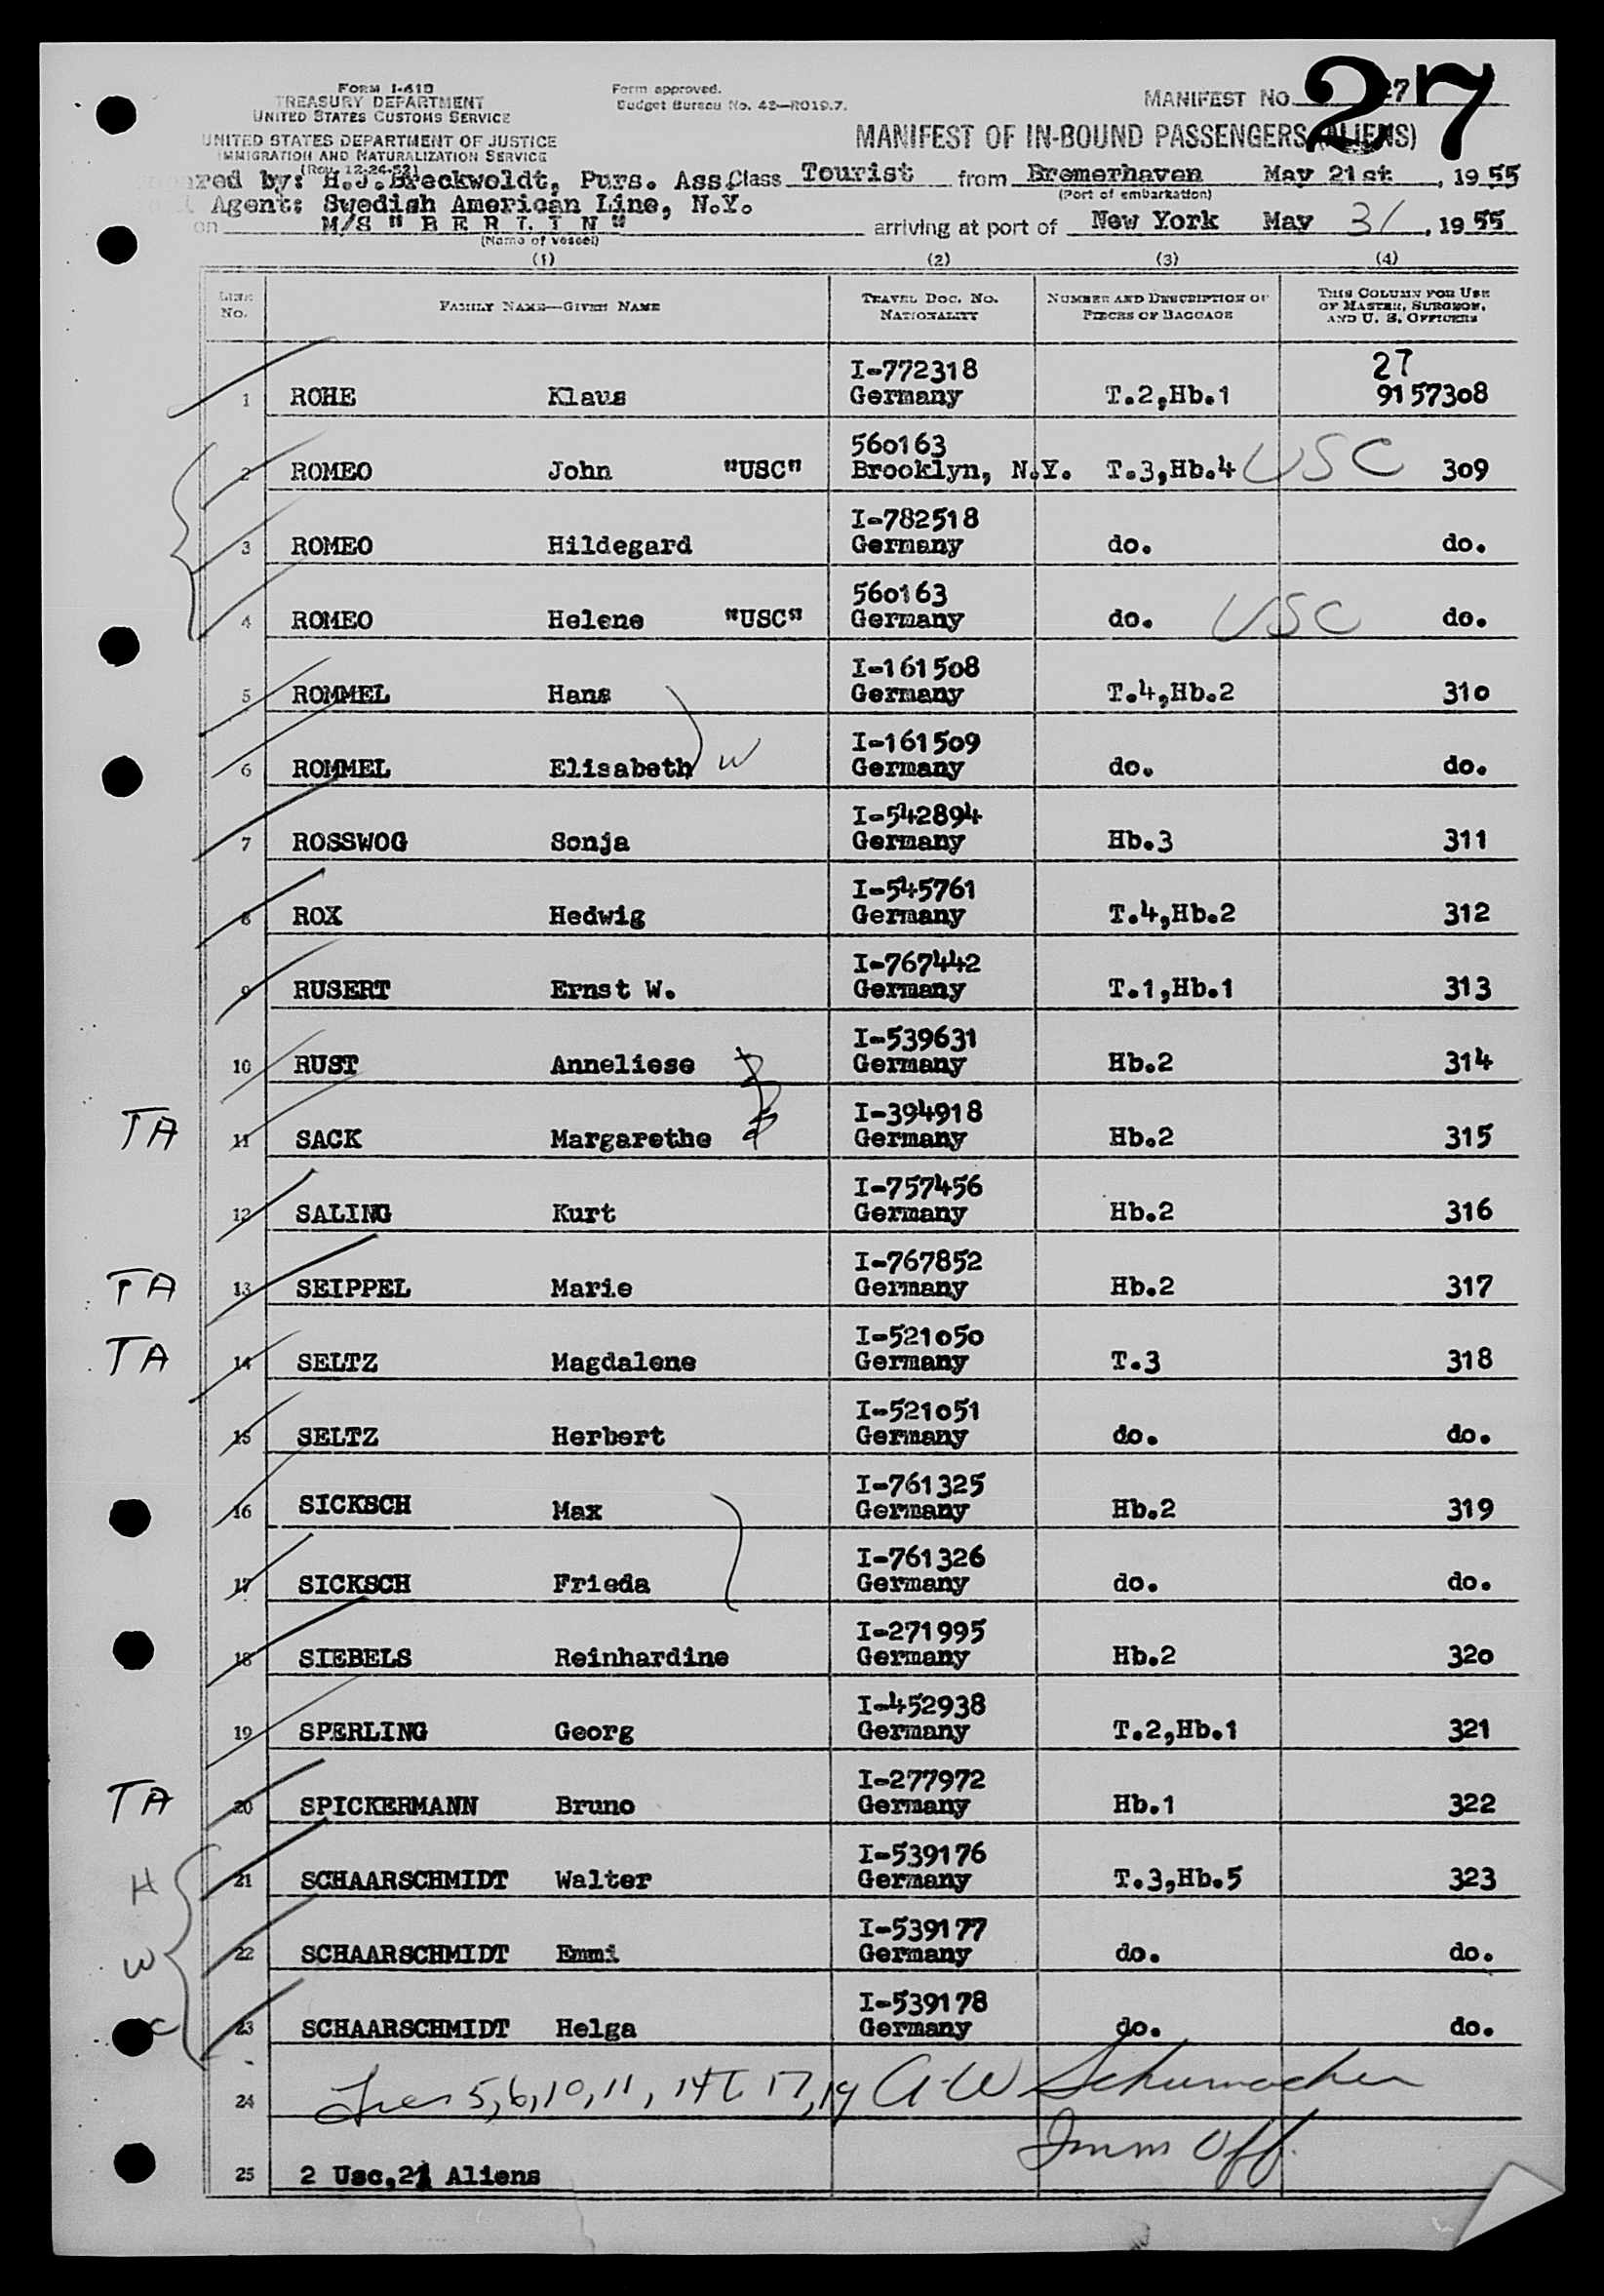 Form I-418
TREASURY DEPARTMENT
UNITED STATES CUSTOMS SERVICE
UNITED STATES DEPARTMENT OF JUSTICE
IMMIGRATION AND NATURALIZATION SERVICE
(Rev. 12-24-52)
Form approved.
Budget Bureau No. 43—R019.7.
MANIFEST NO. 27
27
MANIFEST OF IN-BOUND PASSENGERS (ALIENS)
by: H.J.Breckwoldt, Purs. Ass. Class Tourist from Bremerhaven May 21st, 1955
(Port of embarkation)
Agent: Swedish American Line, N.Y.
on M/S " B E R L I N " arriving at port of New York May 31, 1955
(Name of vessel)
(1) (2) (3) (4)
LINE No. FAMILY NAME—GIVEN NAME TRAVEL DOC. NO. NATIONALITY NUMBER AND DESCRIPTION OF PIECES OF BAGGAGE THIS COLUMN FOR USE OF MASTER, SURGEON, AND U. S. OFFICERS
I-772318 27
1 ROHE Klaus Germany T.2,Hb.1 9157308
560163
2 ROMEO John "USC" Brooklyn, N.Y. T.3,Hb.4 USC 309
I-782518
3 ROMEO Hildegard Germany do. do.
560163
4 ROMEO Helene "USC" Germany do. USC do.
I-161508
5 ROMMEL Hans Germany T.4,Hb.2 310
I-161509
6 ROMMEL Elisabeth W Germany do. do.
I-542894
7 ROSSWOG Sonja Germany Hb.3 311
I-545761
8 ROX Hedwig Germany T.4,Hb.2 312
I-767442
9 RUSERT Ernst W. Germany T.1,Hb.1 313
I-539631
10 RUST Anneliese Germany Hb.2 314
I-394918
TA 11 SACK Margarethe Germany Hb.2 315
I-757456
12 SALING Kurt Germany Hb.2 316
I-767852
TA 13 SEIPPEL Marie Germany Hb.2 317
I-521050
TA 14 SELTZ Magdalene Germany T.3 318
I-521051
15 SELTZ Herbert Germany do. do.
I-761325
16 SICKSCH Max Germany Hb.2 319
I-761326
17 SICKSCH Frieda Germany do. do.
I-271995
18 SIEBELS Reinhardine Germany Hb.2 320
I-452938
19 SPERLING Georg Germany T.2,Hb.1 321
I-277972
TA 20 SPICKERMANN Bruno Germany Hb.1 322
I-539176
H 21 SCHAARSCHMIDT Walter Germany T.3,Hb.5 323
I-539177
W 22 SCHAARSCHMIDT Emmi Germany do. do.
I-539178
C 23 SCHAARSCHMIDT Helga Germany do. do.
24 5,6,10,11, 17,19 A-W Schumacher
Imm Off.
25 2 Usc,21 Aliens